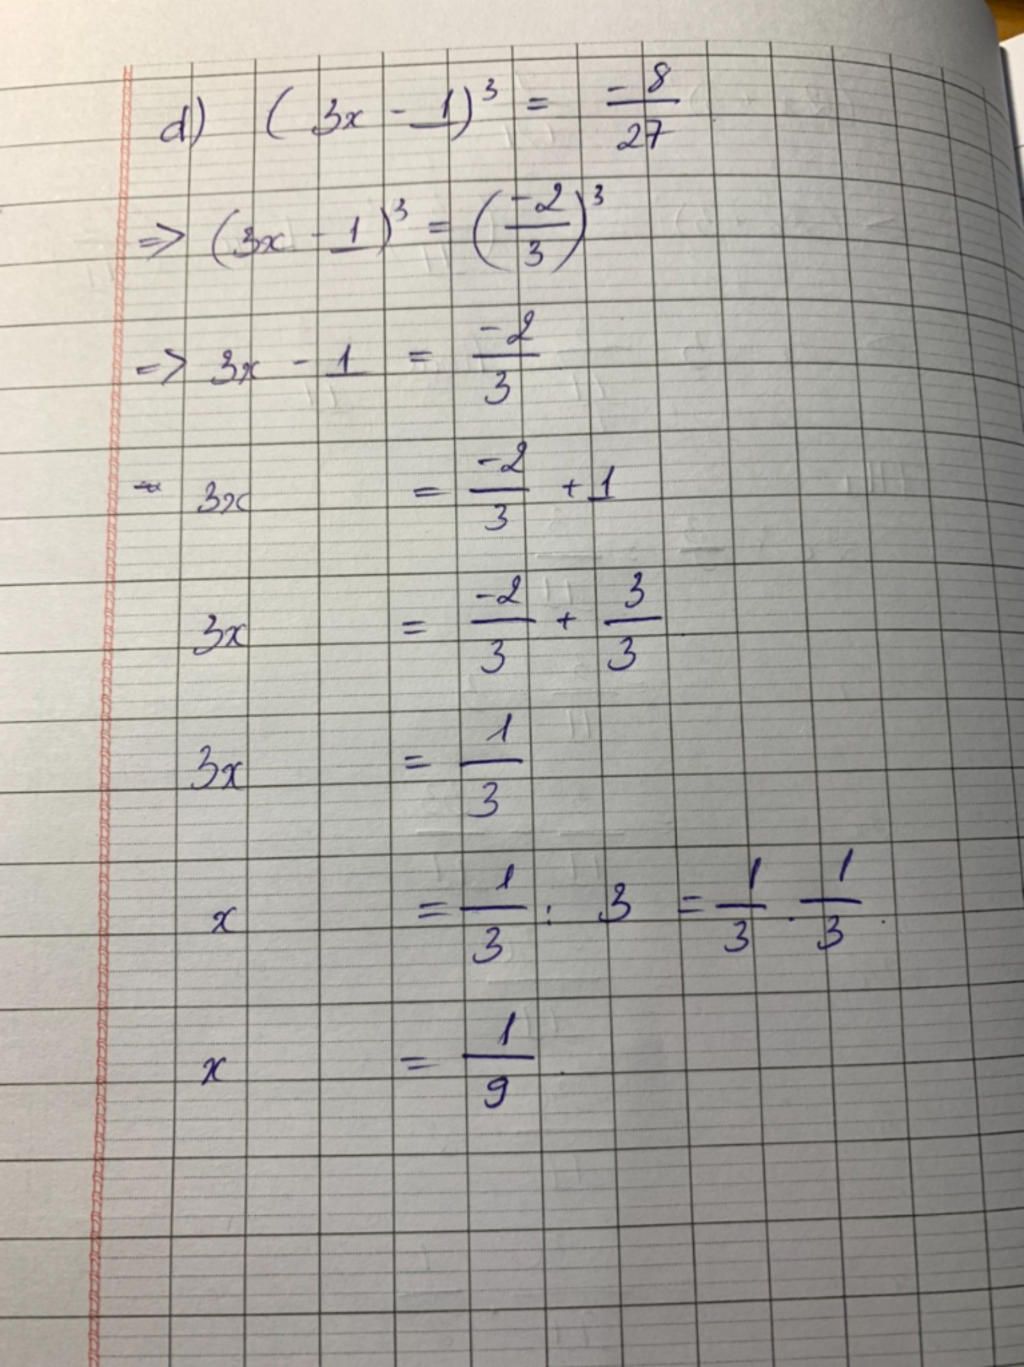 d) (3x - 1)³ = -8/27
=> (3x - 1)³ = (-2/3)³
=> 3x - 1 = -2/3
3x = -2/3 + 1
3x = -2/3 + 3/3
3x = 1/3
x = 1/3 : 3 = 1/3 . 1/3 .
x = 1/9